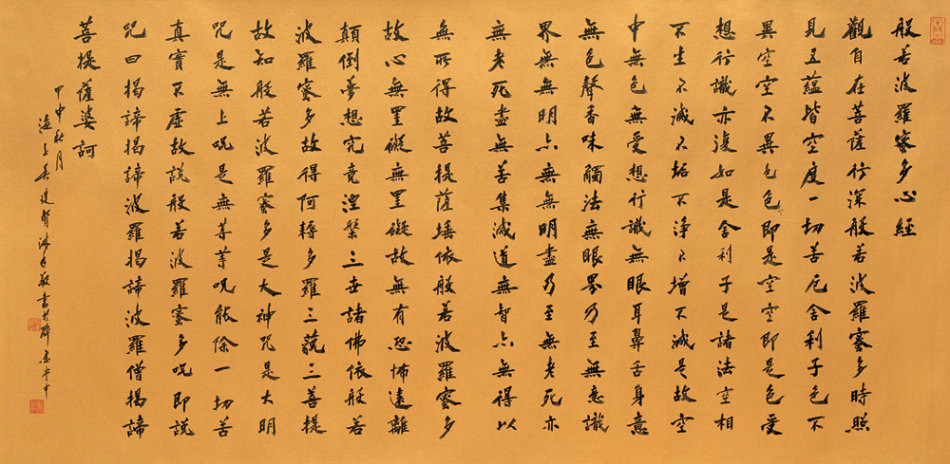 般若波羅蜜多心經
觀自在菩薩行深般若波羅蜜多時照
見五蘊皆空度一切苦厄舍利子色不
異空空不異色色即是空空即是色受
想行識亦復如是舍利子是諸法空相
不生不滅不垢不淨不增不減是故空
中無色無受想行識無眼耳鼻舌身意
無色聲香味觸法無眼界乃至無意識
界無無明亦無無明盡乃至無老死亦
無老死盡無苦集滅道無智亦無得以
無所得故菩提薩埵依般若波羅蜜多
故心無罣礙無罣礙故無有恐怖遠離
顛倒夢想究竟涅槃三世諸佛依般若
波羅蜜多故得阿耨多羅三藐三菩提
故知般若波羅蜜多是大神咒是大明
咒是無上咒是無等等咒能除一切苦
真實不虛故說般若波羅蜜多咒即說
咒曰揭諦揭諦波羅揭諦波羅僧揭諦
菩提薩婆訶
甲申秋月